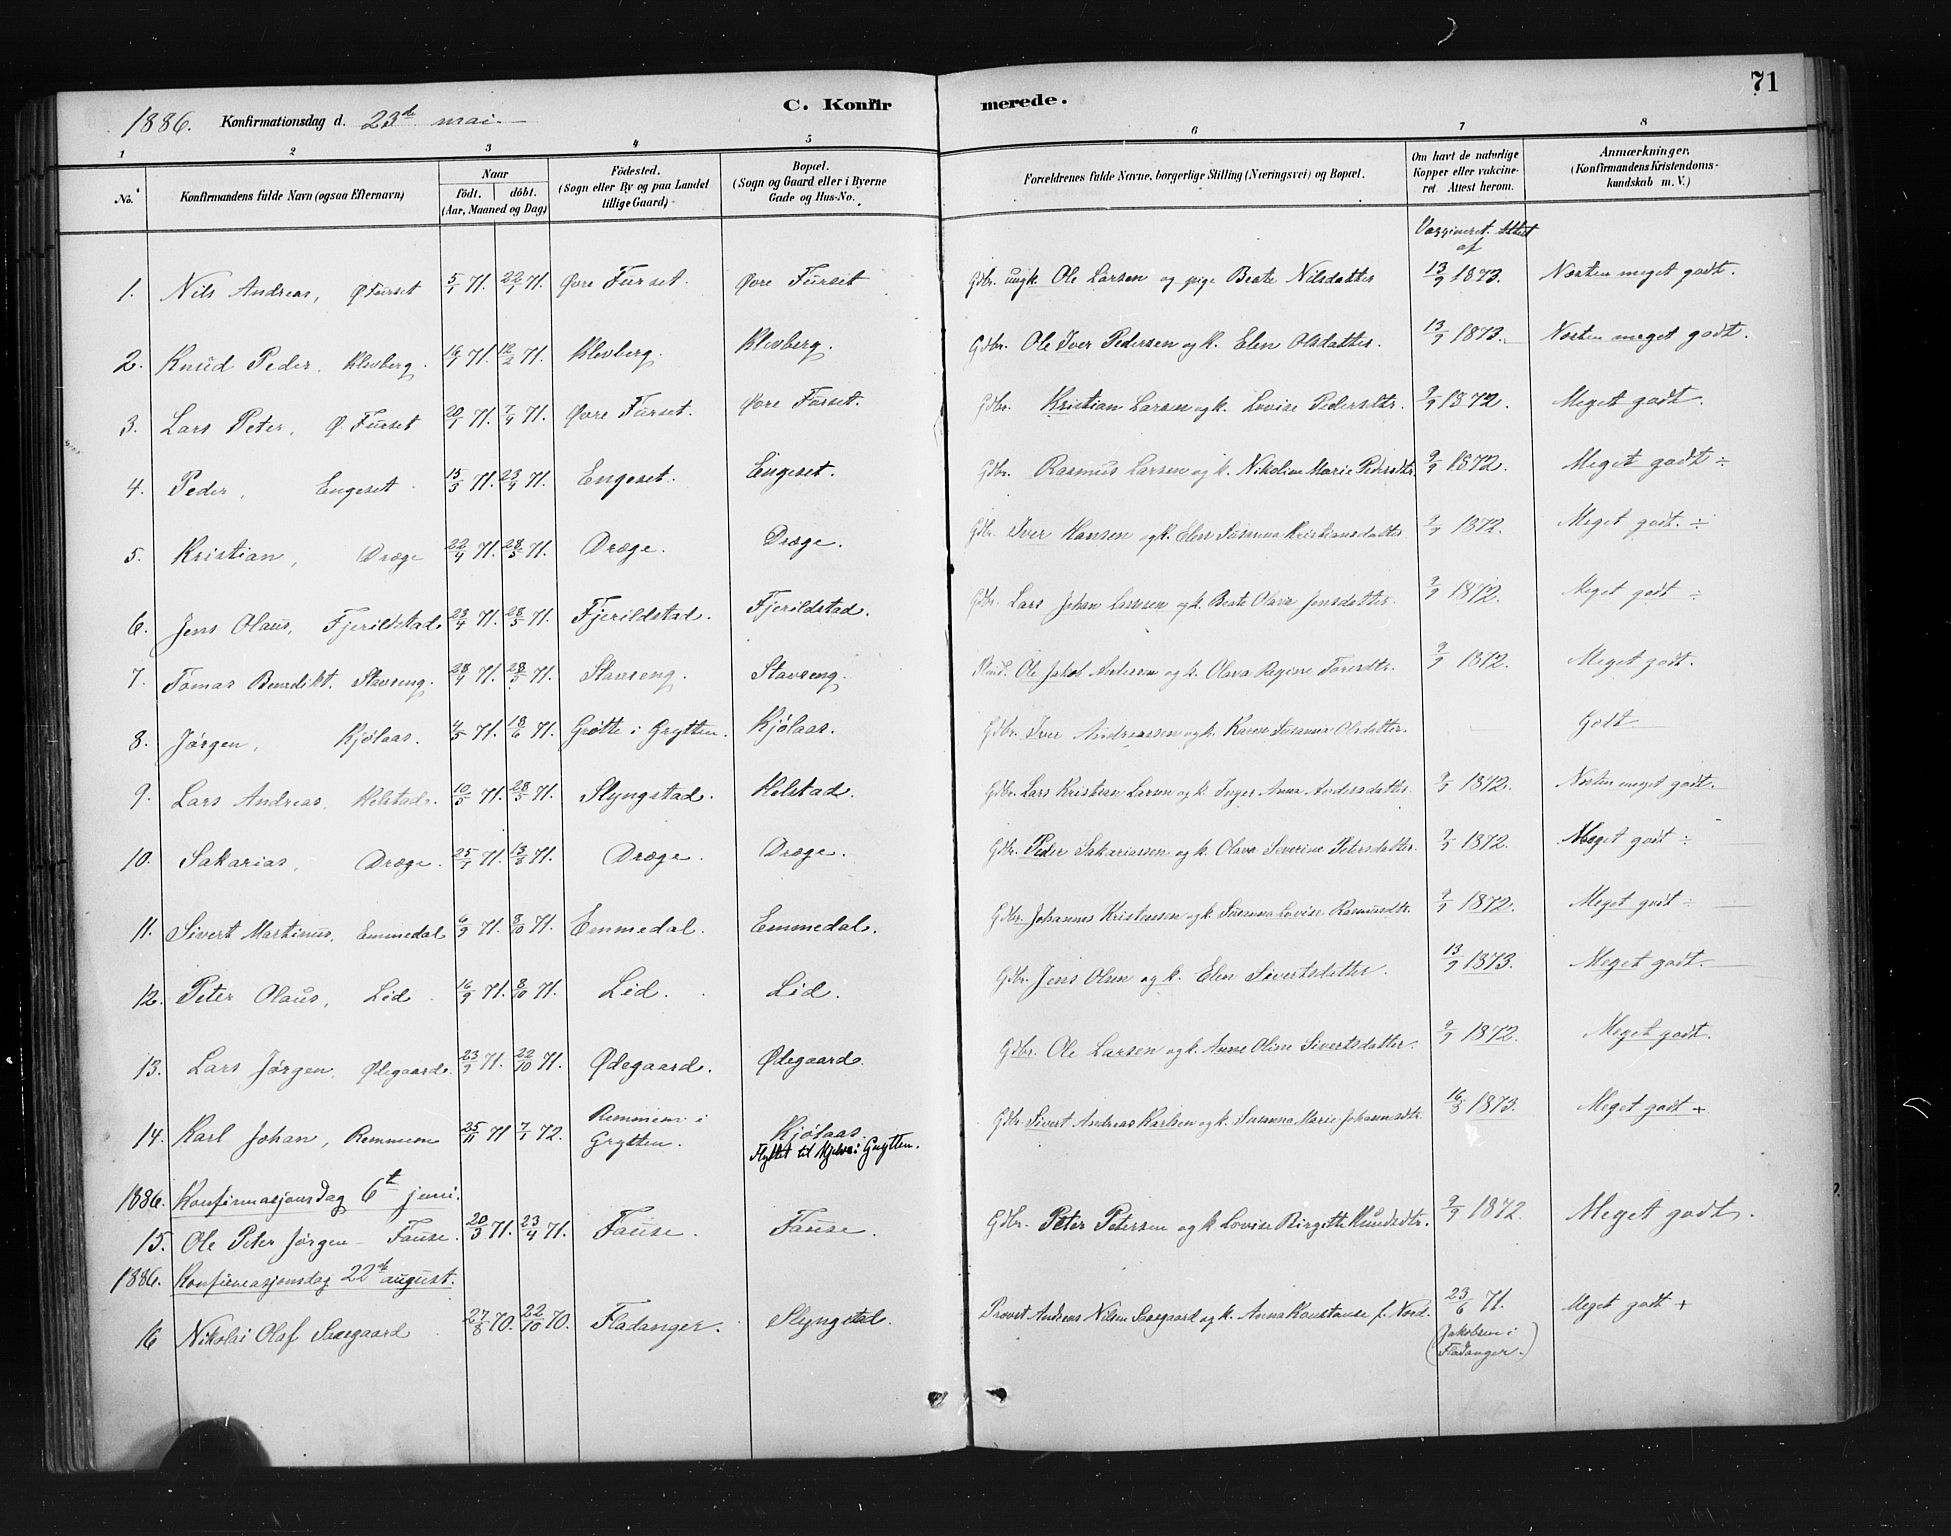 71
C. Konfirmerede.
1886. Konfirmationsdag d. 23de mai.
1 2 3 4 5 6 7 8
No. Konfirmandens fulde Navn (ogsaa Efternavn) Naar født. døbt. (Aar, Maaned og Dag) Fødested. (Sogn eller By og paa Landet tillige Gaard) Bopæl. (Sogn og Gaard eller i Byerne Gade og Hus-No. Forældrenes fulde Navne, borgerlige Stilling (Næringsvei) og Bopæl. Om havt de naturlige Kopper eller vakcineret. Attest herom. Anmærkninger. (Konfirmandens Kristendomskundskab m. V.)
Vaxsineret. Attest af
1. Nils Andreas, Ø Furset 5/1 71. 22/1 71. Øvre Furset. Øvre Furset Gdbr. ungk. Ole Larsen og pige Beate Nilsdatter 13/9 1873. Næsten meget godt.
2. Knud Peder, Klevberg. 71. 12/2 71. Klevberg. Klevberg. Gdbr. Ole Iver Pedersen og k. Elen Olsdatter. 13/9 1873. Næsten meget godt.
3. Lars Peter, Ø Furset 71. 71. Øvre Furset. Øvre Furset. Gdbr. Kristian Larsen og k. Lovise Pedersdtr. 9/9 1872. Meget godt.
4. Peder, Engeset 15/3 71. 23/4 71. Engeset. Engeset. Gdbr. Rasmus Larsen og k. Nikoline Marie Pedersdtr. 9/9 1872. Meget godt ÷
5. Kristian, Dræge 22/4 71. 28/5 71. Dræge. Dræge. Gdbr. Iver Hansen og k. Elen Susanna Kristiansdatter. 9/9 1872. Meget godt. ÷
6. Jens Olaus, Fjerildstad 23/4 71. 28/5 71. Fjerildstad. Fjerildstad. Gdbr. Lars Johan Larsen og k. Beate Olava Jensdatter. 9/9 1872. Meget godt ÷
7. Tomas Benedikt. Stavseng. 28/4 71. 28/5 71. Stavseng. Stavseng. Ole Jakob Andersen og k. Olava Regine Toresdtr. 9/9 1872. Meget godt.
8. Jørgen, Kjølaas. 4/5 71. 18/6 71. Grøtte i Grytten. Kjølaas. Gdbr. Iver Andreassen og k. Karen Susanna Olsdatter. Godt
9. Lars Andreas, Helstad. 10/5 71. 28/5 71. Slyngstad. Helstad. Gdbr. Lars Kristian Larsen og k. Inger Anna Andersdatter. 9/9 1872. Næsten meget godt.
10. Sakarias, Dræge. 71. 71. Dræge. Dræge. Gdbr. Peder Sakariassen og k. Olava Severine Petersdatter. 9/9 1872. Meget godt ÷
11. Sivert Martinus, Emmedal 6/9 71. 8/10 71. Emmedal. Emmedal. Gdbr. Johannes Kristensen og k. Susanna Lovise Rasmusdtr. 9/9 1872. Meget godt ÷
12. Peter Olaus, Lid 16/9 71. 8/10 71. Lid. Lid. Gdbr. Jens Olsen og k. Elen Sivertsdatter. 13/9 1873. Meget godt.
13. Lars Jørgen, Ødegaard. 23/9 71. 22/10 71. Ødegaard. Ødegaard. Gdbr. Ole Larsen og k. Anne Oline Sivertsdatter. 9/9 1872. Meget godt.
14. Karl Johan, Remmem 25/11 71 7/1 72. Remmem i Grytten. Kjølaas. Gdbr. Sivert Andreas Karlsen og k. Susanna Marie Johannesdtr. 1873. Meget godt +
Flyttet til i Grytten.
1886. Konfirmasjonsdag 6te juni.
15. Ole Peter Jørgen Fause. 20/3 71. 23/4 71. Fause. Fause. Gdbr. Peter Petersen og k. Lovise Birgitte Knudsdtr. 9/9 1872. Meget godt.
1886. Konfirmasjonsdag 22de august.
16 Nikolai Olaf Saxegaard 27/8 70. 22/10 70. Fladanger. Slyngstad. Provst Andreas Nilsen Saxegaard og k. Anna Konstanse f. Nord. 23/6 71. Meget godt +
(Jakobsen i Fladanger.)